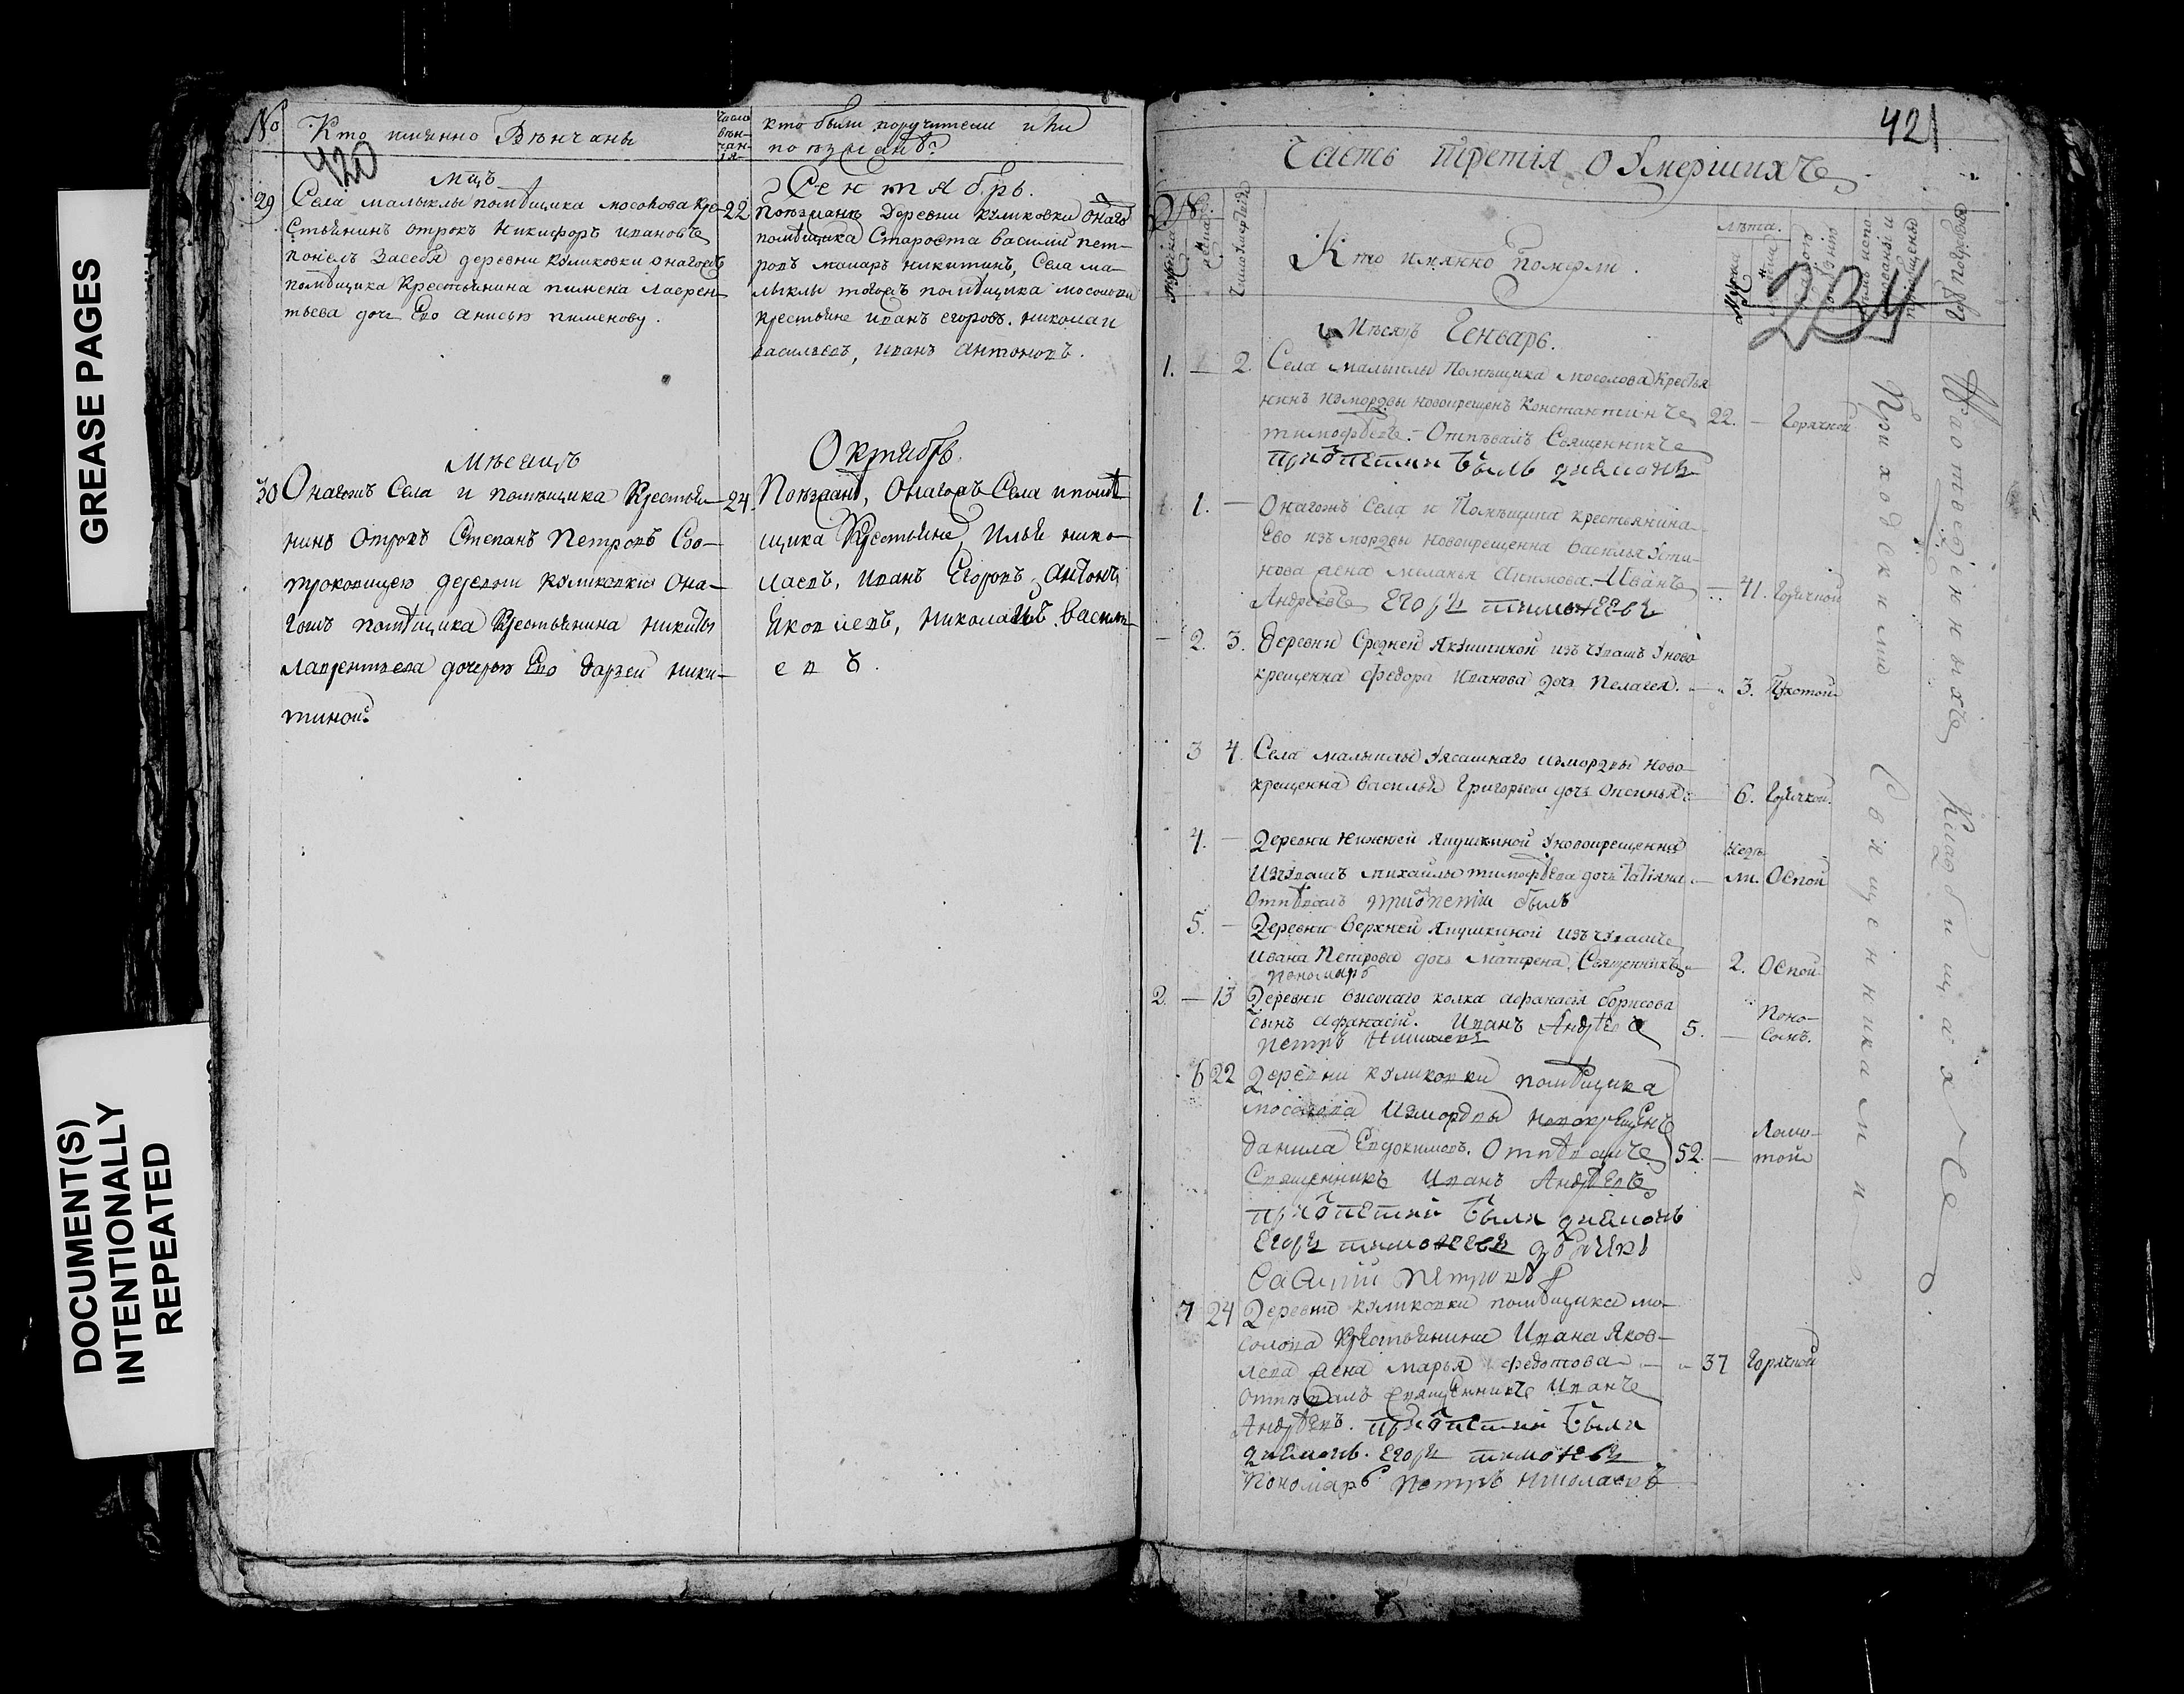 GREASE PAGES
DOCUMENT(S)
INTENTIONALLY
REPEATED
№
Кто имянно Вѣнчаны
число вѣн-чан-ія
кто были поручители или
поѣзжанѣ
420
Мцъ
Сентябрь.
29
Села малыклы помѣщика мосолова кре-
стьянинъ отрокъ Никифоръ ивановъ
понелъ засебя деревни куликовки онагожъ
помѣщика Крестьянина пимена лаврен-
тьева дочь Ево анисью пименову.
22
поѣзжанѣ деревни куликовки онаго
помѣщика Староста василий пет-
ровъ макаръ никитинъ, Села ма-
лыклы тогожъ помѣщика мосолова
крестьяне иванъ егоровъ. николай
васильевъ, иванъ антоновъ.
Мѣсяцъ
Октябрь.
30
Онагожъ Села и помѣщика Крестья-
нинъ Отрокъ Степанъ Петровъ Со-
отроковицею деревни куликовки Она-
гожъ помѣщика Крестьянина никиты
лаврентьева дочерью Ево дарьей ники-
тиной.
24.
Поѣзжанѣ, Онагожъ Села и помѣ-
щика Крестьяне, Илья нико-
лаевъ, иванъ Егоровъ, антонъ
Яковлевъ, николай василь-
евъ.
421
Часть третія о Умершихъ
№.
Лѣта.
Кто имянно Померли.
234
Мѣсяцъ Генварь.
1. — 2.
Села малыклы Помѣщика мосолова Крестья
нинъ измордвы новокрещенъ Константинъ
тимофѣевъ. — Отпѣвалъ Священникъ
приотпетии былъ диаконъ
22. — Горячкой
1. —
Онагожъ Села и Помѣщика крестьянина
Ево изъ мордвы новокрещенна василья Усти-
нова жена меланья акимова. — Иванъ
Андреевъ Егоръ тимофеевъ
— 41. Горячкой
— 2. 3.
Деревни Средней Якушкиной изъ чувашъ Уново
крещенна федора Иванова дочь Пелагея.
3.
3 4.
Села малыклы Уясашнаго измордвы ново-
крещенна василья Григорьева дочь Оксинья
6. Горячкой.
4. —
Деревни нижней якушкиной Уновокрещенна
Изчувашъ михайлы тимофѣева дочь татіана
Отпѣвалъ приотпетіи былъ
недѣ-
ли. Оспой
5. —
Деревни верхней якушкиной изъ чувашъ
ивана Петрова дочь матрена. Священникъ
пономарь
2. Оспой
2. — 13
Деревни высокаго колка афанасія борисова
сынъ афанасій. Иванъ Андреевъ
петръ Николаевъ
5. —
Поно-
сомъ.
6 22
Деревни куликовки помѣщика
мосолова измордвы новокрещенъ
данила Евдокимовъ. Отпѣвалъ
Священникъ Иванъ Андрѣевъ
приотпетии были диаконъ
Егоръ тимофеевъ дьячекъ
Савелий Петровъ
52. —
Ломо-
той
7 24
Деревни куликовки помѣщика мо-
солова Крестьянина Ивана Яков-
лева жена марья федотова
отпѣвалъ священникъ Иванъ
Андрѣевъ. приотпетии были
диаконъ. Егоръ тимофеевъ
пономарь петръ николаевъ
37 Горячкой
Приходскимъ Священникамъ
На отведенныхъ кладбищахъ